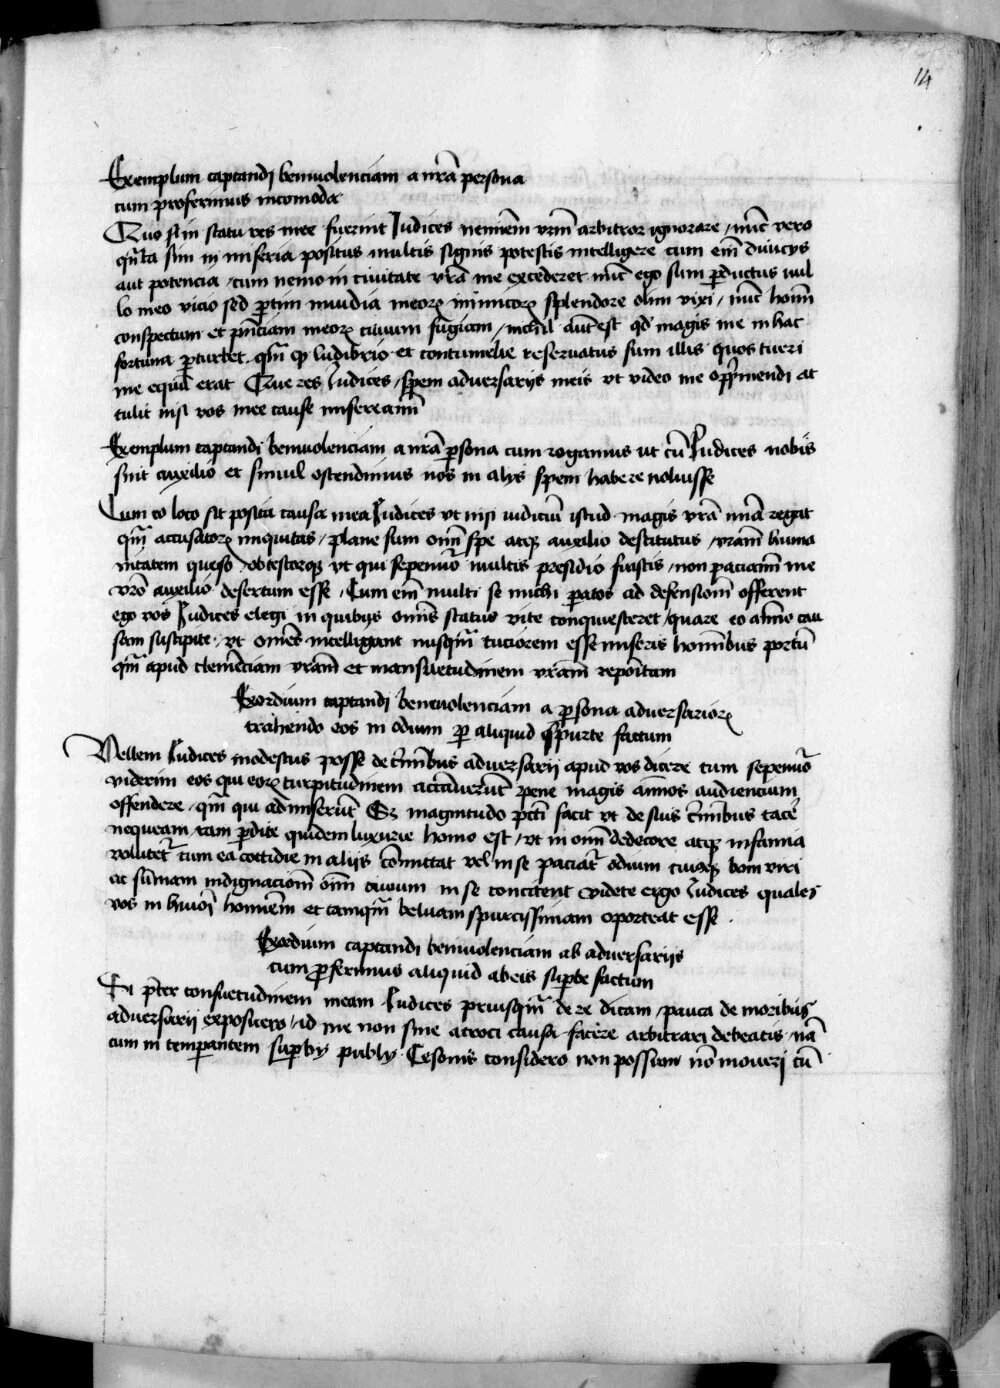 14
Exemplum captandi benivolenciam a nr̄a persona
cum proferimus incomoda
Quo si in statu res mee fuerint Iudices neminem vr̄m arbitror ignorare / nūc vero
qn̄ta sim in miseria positus multis signis potestis intelligere cum em̄ divicijs
aut potencia / cum nemo in civitate vr̄a me excederet nūc ego sum ꝑductus nul
lo meo vicio sed ꝑtim invidia meoꝝ inimicoꝝ splendore olim vixi / nūc homī
conspectum et pn̄ciam meoꝝ civium fugiam / nichil aut̄ est qd̄ magis me in hac
fortuna ꝑturbet qm̄ ꝙ ludibrio et contumelie reservatus sum illis quos tueri
me equū erat Que res Iudices / spem adversarijs meis vt video me opp̄mendi at
tulit nisi vos mee cause misereamī
Exemplum captandi benivolenciam a nr̄a ꝑsona cum rogamus ut cū Iudices nobis
sint auxilio et simul ostendimus nos in alijs spem habere noluisse
Cum eo loco sit posita causa mea Iudices vt nisi iudiciū istud magis vr̄a īnā regat
qm̄ accusatoꝝ iniquitas / plane sum omī spe atqꝫ auxilio destitutus / vr̄am huma
nitatem queso obtestorqꝫ vt qui sepenūo multis presidio fuistis / non paciamī me
vr̄o auxilio desertum esse / Cum em̄ multi se michi ꝑatos ad defensionē offerent
ego vos Iudices elegi in quibus omīs status vite conquiesceret / quare eo aīmo cau
sam suscipite / vt omēs intelligant nusqm̄ tuciorem esse miseris homībus portū
qm̄ apud clemēciam vr̄am et mansuetudinem vr̄am repositam
Exordium captandi benevolenciam a ꝑsona adversarioꝝ
trahendo eos in odium ꝑ aliquid spurte factum
Vellem Iudices modestius posse de cīmībus adversarii apud vos dicere cum sepenūo
viderim eos qui eoꝝ turpitudinem pene magis aīmos audiencium
offendere / qm̄ qui admiserūt Sꝫ magnitudo pcc̄ti facit vt de suis cīmībus tacē
nequeam tam ꝑdite quidem luxurie homo est / vt in omī dedecore atqꝫ infamia
volutet̄ cum ea cottidie in alijs cōmittat vel in se paciat̄ odium cuiusqꝫ boni viri
ac sūmam indignacionē oīm civium in se concitent videte ergo Iudices quales
vos in huiōi homīem et tamqm̄ beluam spurcissimam oporteat esse .
Exordium captandi benivolenciam ab adversarijs
cum proferimus aliquid ab eis suꝑbe factum
Si p̄ter consuetudinem meam Iudices priusqm̄ de re dicam / pauca de moribus
adversarii exposuero / id me non sine atroci causa facere arbitrari debeatis / nā
cum intemperantem suꝑbij publij Cesonis considero non possum nō moveri cū